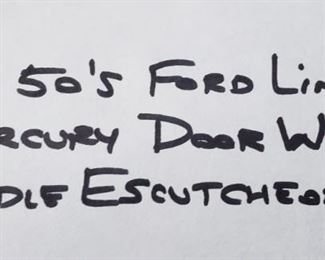 50's FORD LIN
RCURY DOOR W
DLE ESCUTCHEO